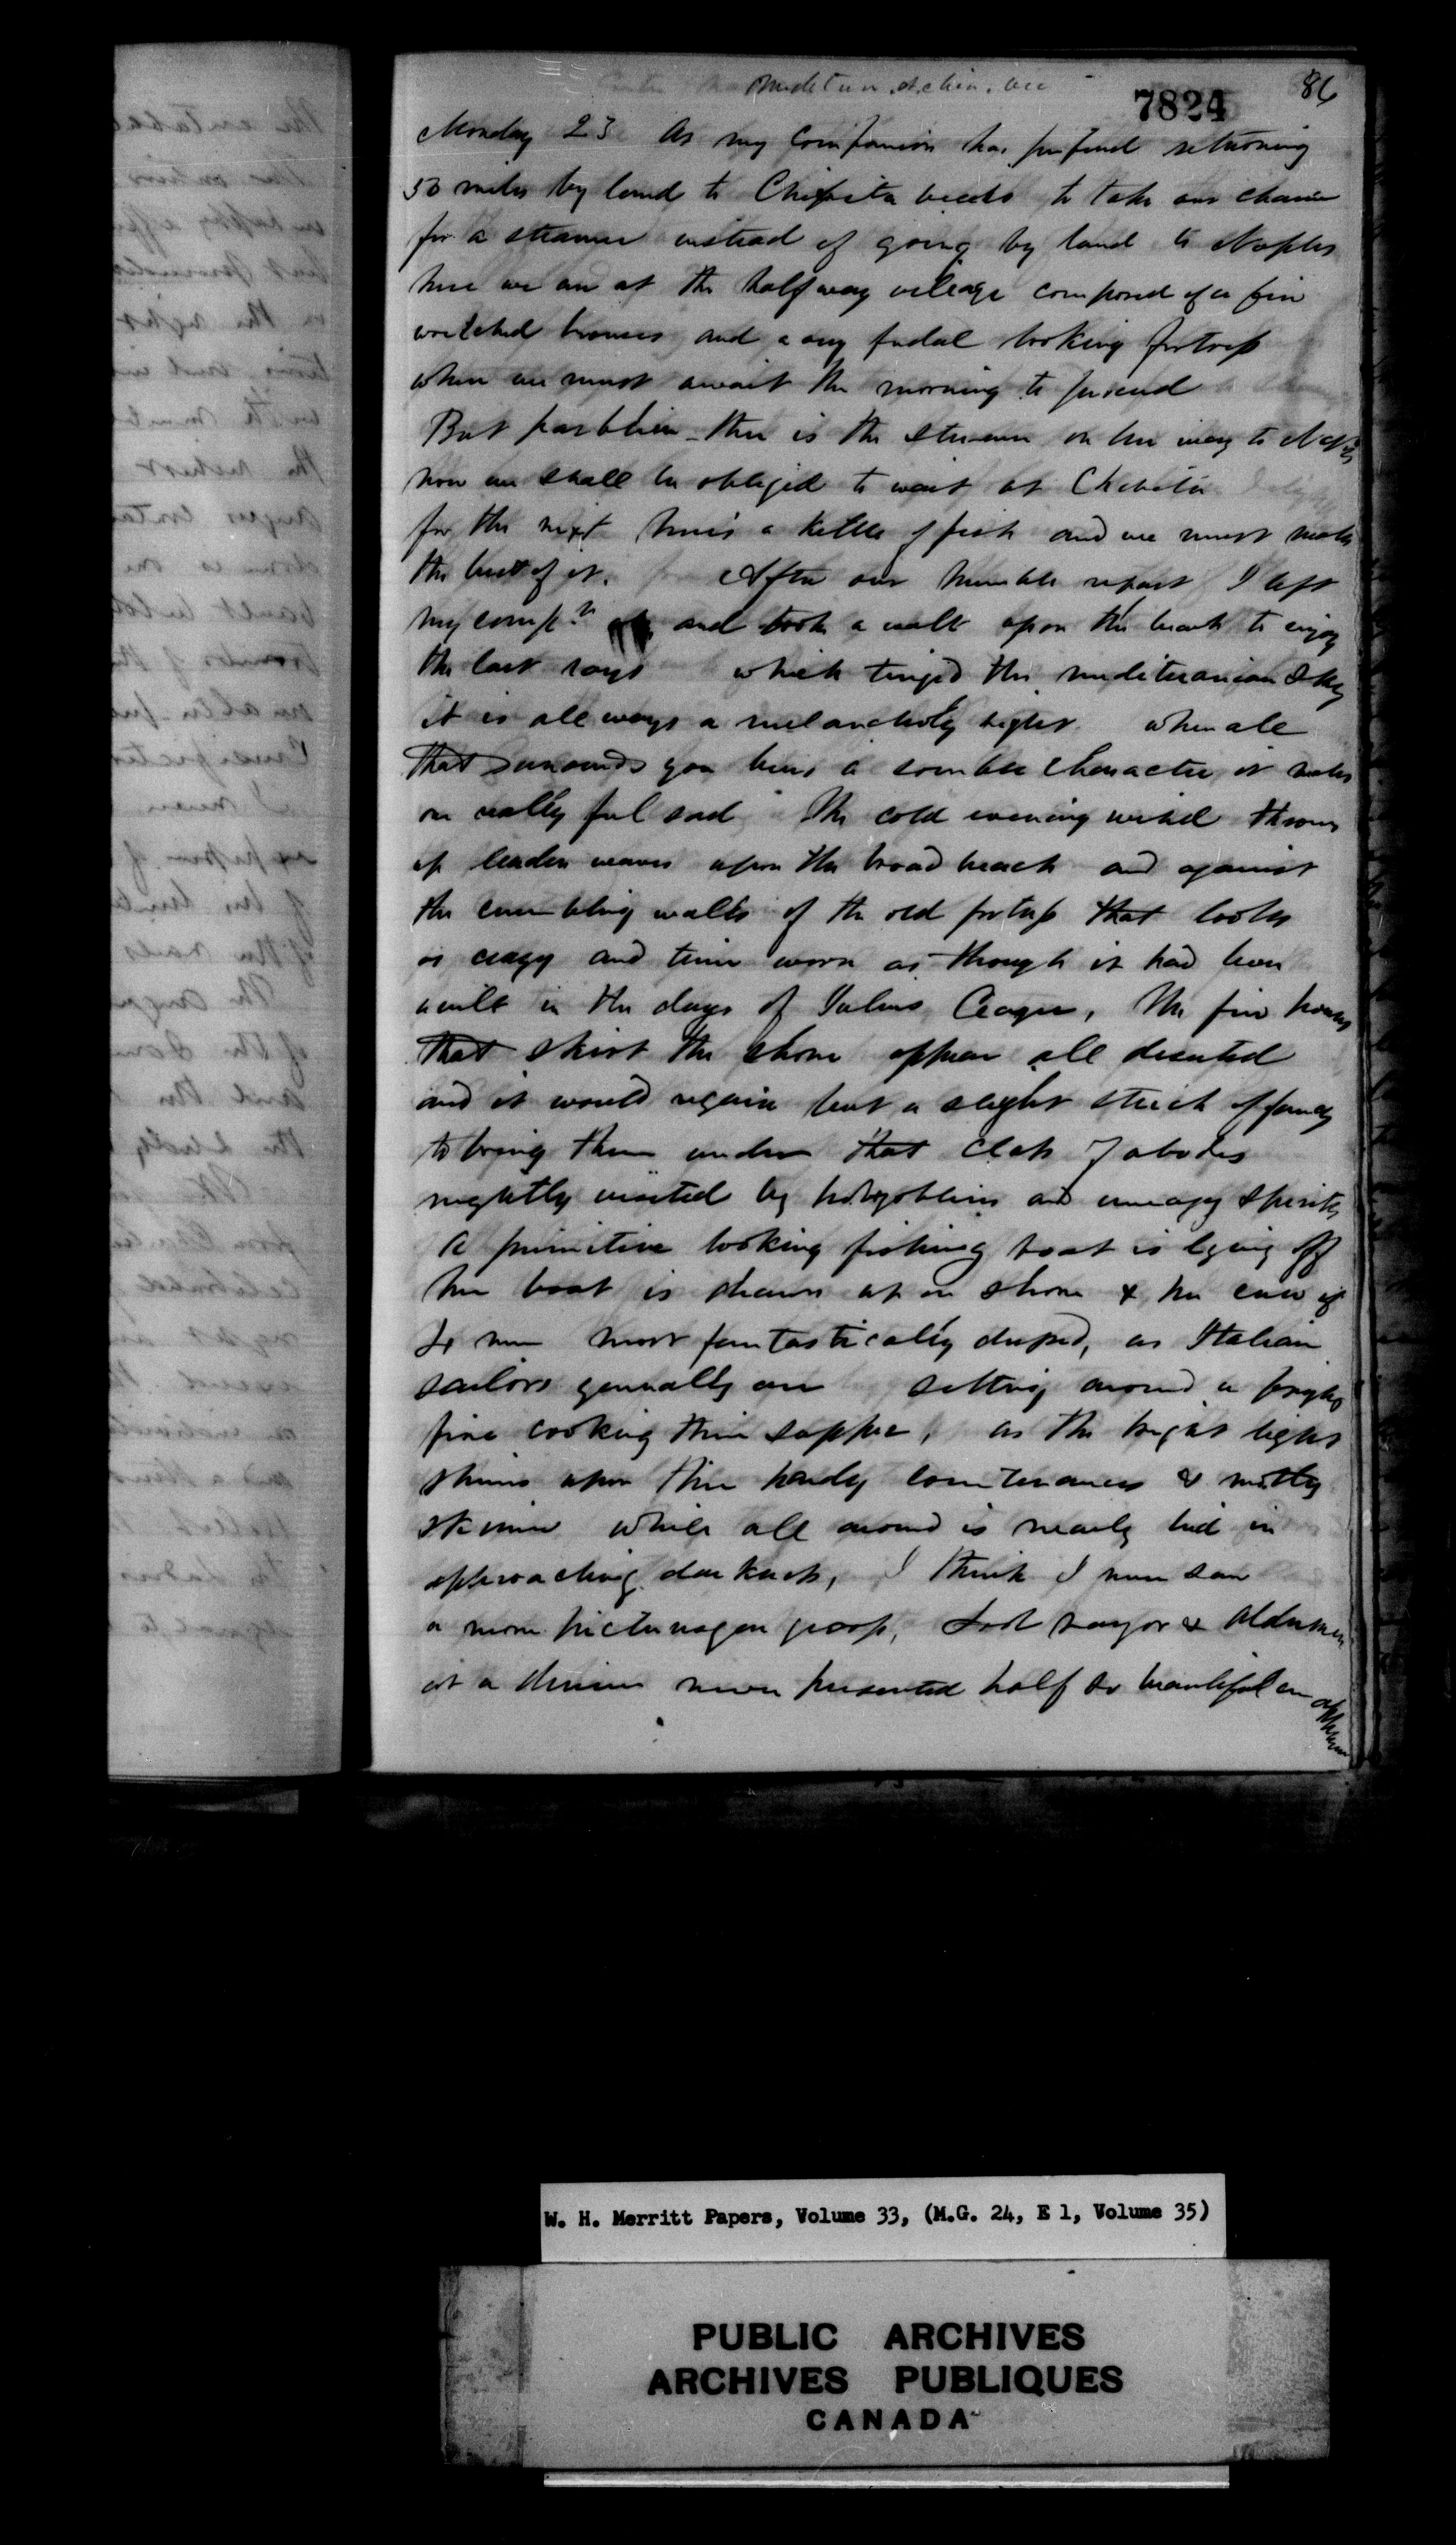 7824
86
Monday 23 As my companion has prefered returning
50 miles by land to Chivita to take our chance
for a steamer instead of going by land to Naples
here we are at the half way village composed of a few
wretched houses and a very fudal looking fortress
where we must await the morning to proceed
But there is the steamer on her way to Naples
now we shall be obliged to wait at Chivita
for the next here's a kettle of fish and we must make
the best of it. After our humble repast I left
my compn and took a walk upon the beach to enjoy
the last rays which tinged the mediteranian sky
it is allways a melancholy sight when all
that surounds you bears a sombre character it makes
one really feel sad The cold evening wind throws
up leaden waves upon the broad beach and against
the crumbling walls of the old fortress that looks
as crazy and time worn as though it had been
built in the days of Julius Ceaser, The few houses
that skirt the shore appear all deserted
and it would require but a slight streach of fancy
to bring them under that class of abodes
nightly visited by hobgoblins and uneasy spirits
A primitive looking fishing boat is lying off
her boat is drawn up on shore & her crew of
men most fantastically dressed, as Italian
sailors generally are setting around a bright
fire cooking their supper, as the bright light
shines upon their hardy countenances &
while all around is nearly hid in
approaching darkness, I think I never saw
a more picturesque group, Lord mayor & Aldermen
at a dinner never presented half so beautiful an appearance
W. H. Merritt Papers, Volume 33, (M.G. 24, E 1, Volume 35)
PUBLIC ARCHIVES
ARCHIVES PUBLIQUES
CANADA